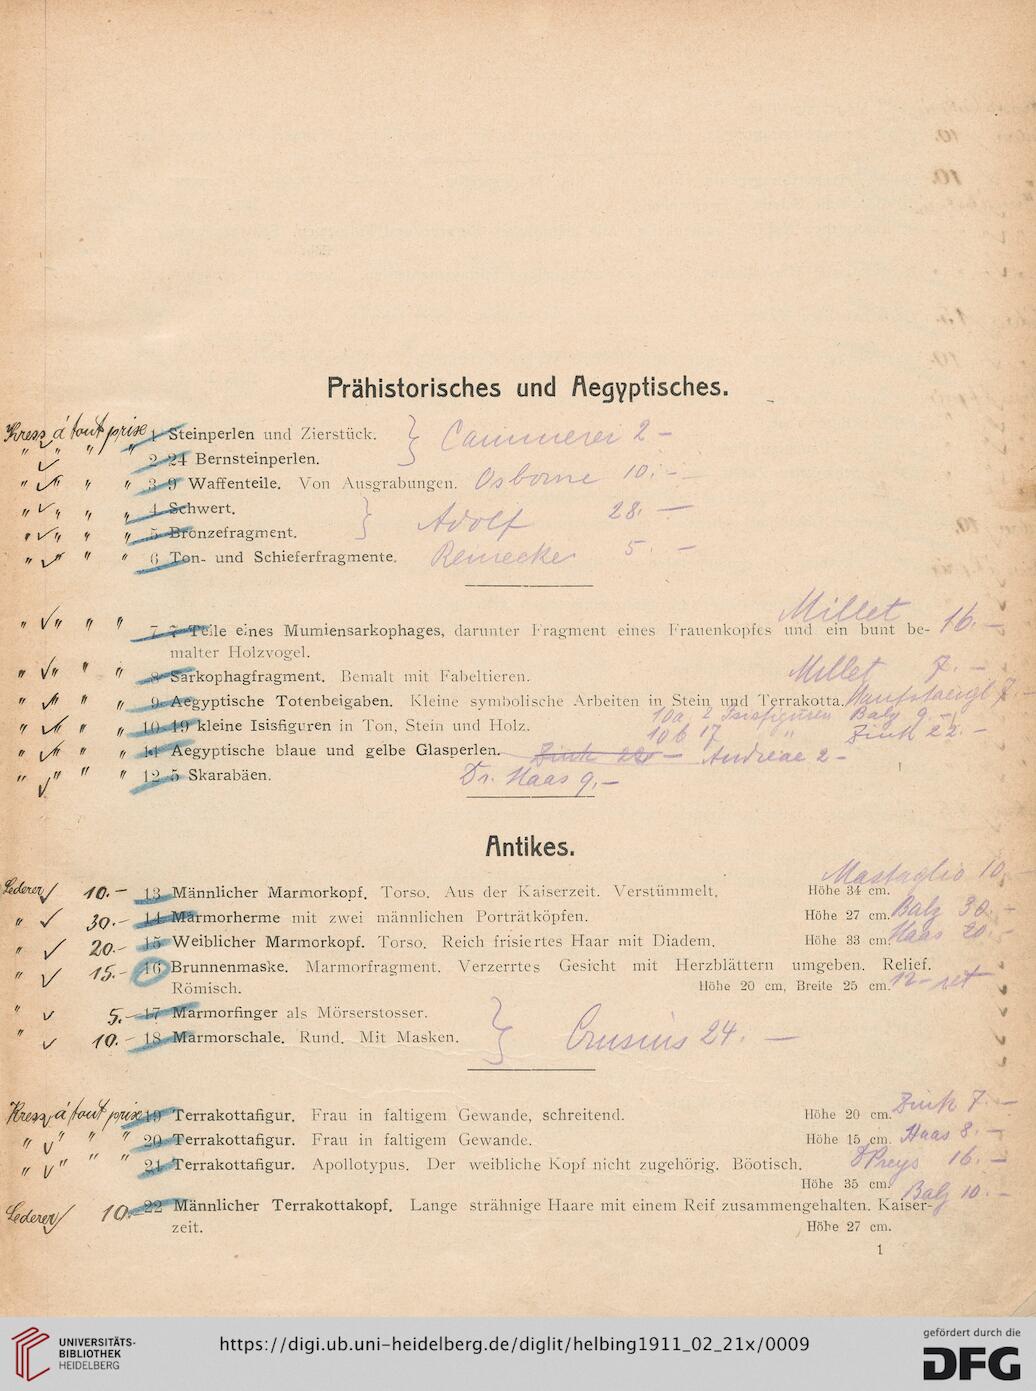 Prähistorisches und Aegyptisches.
Kress à tout prise 1 Steinperlen und Zierstück. } Cammerer 2 –
" ✓ " " 2 24 Bernsteinperlen.
" ✓" " " 3 9 Waffenteile. Von Ausgrabungen. Osborne 10. –
" ✓" " " 4 Schwert. } Adolf 28. –
" ✓" " " 5 Bronzefragment.
" ✓" " " 6 Ton- und Schieferfragmente. Reinecke 5. –
" ✓" " " 7 7 Teile eines Mumiensarkophages, darunter Fragment eines Frauenkopfes und ein bunt be- Millet 16. –
malter Holzvogel.
" ✓" " " 8 Sarkophagfragment. Bemalt mit Fabeltieren. Millet 7. –
" ✓" " " 9 Aegyptische Totenbeigaben. Kleine symbolische Arbeiten in Stein und Terrakotta. Hanfstaengl 7. –
10a, 2 Isisfiguren Balz 9. –
" ✓" " " 10 19 kleine Isisfiguren in Ton, Stein und Holz. 10b 17 " Zink 22. –
" ✓" " " 11 Aegyptische blaue und gelbe Glasperlen. Zink 22 – Andreae 2 –
" ✓" " " 12 5 Skarabäen. Dr. Haas 9, –
Antikes.
Mastaglio 10. –
Lederer ✓ 10. – 13 Männlicher Marmorkopf. Torso. Aus der Kaiserzeit. Verstümmelt. Höhe 34 cm.
" ✓ 30. – 14 Marmorherme mit zwei männlichen Porträtköpfen. Höhe 27 cm. Balz 30. –
" ✓ 20. – 15 Weiblicher Marmorkopf. Torso. Reich frisiertes Haar mit Diadem. Höhe 33 cm. Haas 20. –
" ✓ 15. – 16 Brunnenmaske. Marmorfragment. Verzerrtes Gesicht mit Herzblättern umgeben. Relief.
Römisch. Höhe 20 cm, Breite 25 cm. 12 – ret
" ✓ 5. – 17 Marmorfinger als Mörserstosser.
" ✓ 10. – 18 Marmorschale. Rund. Mit Masken. } Crusius 24. –
Kress à tout prise 19 Terrakottafigur. Frau in faltigem Gewande, schreitend. Höhe 20 cm. Zink 7. –
" ✓" " " 20 Terrakottafigur. Frau in faltigem Gewande. Höhe 15 cm. Haas 8. –
" ✓" " " 21 Terrakottafigur. Apollotypus. Der weibliche Kopf nicht zugehörig. Böotisch. Preys 16. –
Höhe 35 cm. Balz 10. –
Lederer ✓ 10. – 22 Männlicher Terrakottakopf. Lange strähnige Haare mit einem Reif zusammengehalten. Kaiser-
zeit. Höhe 27 cm.
1
UNIVERSITÄTS-
BIBLIOTHEK
HEIDELBERG
https://digi.ub.uni-heidelberg.de/diglit/helbing1911_02_21x/0009
gefördert durch die
DFG